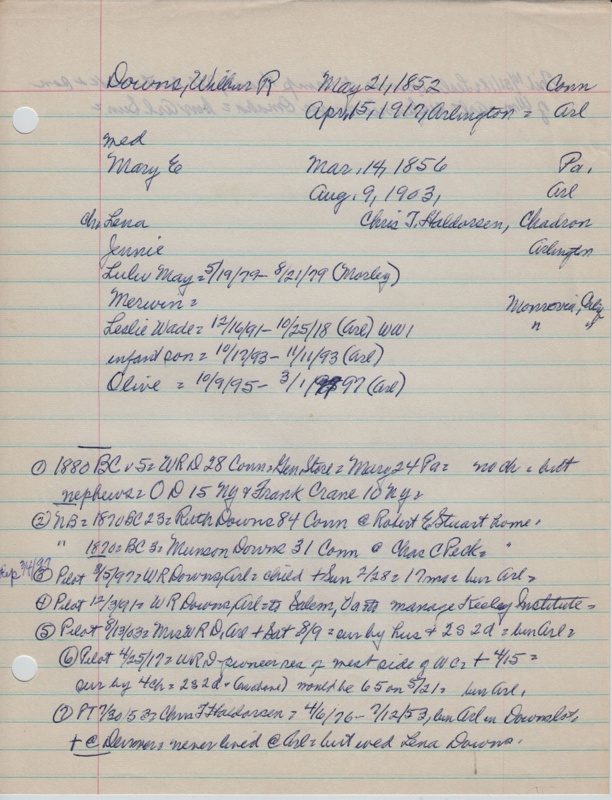 Downs, Wilbur R May 21, 1852 Conn
Apr, 15, 1917, Arlington = Arl
med
Mary E Mar, 14, 1856 Pa,
Aug, 9, 1903, Arl
ch, Lena Chris T, Haldorsen, Chadron
Jennie Arlington
Lulu May = 5/19/79 - 8/21/79 (Morley)
Merwin = Monrovia,
Leslie Wade = 12/16/91 - 10/25/18 (Arl) WW1 "      "
infant son = 10/17/93 - 11/11/93 (Arl)
Olive = 10/9/95 - 3/1/97 (Arl)
① 1880 BC v 5 = WR D 28 Conn = Gen Store = Mary 24 Pa = no ch = but
nephews = O D 15 Ny & Frank Crane 10 Ny =
② NB = 1870 BC 23 = Ruth Downs 84 Conn @ Robert E Stuart home,
" 1870 = BC 3 = Munson Downs 31 Conn @ Chas C Peck = "
③ Pilot 3/5/97 = WR Downs, Arl = child + Sun 2/28 = 17 mo = bur Arl =
④ Pilot 12/3/91 = WR Downs, Arl = to Salem, to manage Keeley Institute =
⑤ Pilot 8/13/03 = Mrs WR D, Arl + Sat 8/9 = sur by hus + 2s 2d = bur Arl =
⑥ Pilot 4/25/17 = WR D - pioneer res of west side of WC = + 4/15 =
sur by 4 ch = 2s 2d + would be 65 on 5/21 = bur Arl,
⑦ PT 7/30/53 = Chris T Haldorsen = 4/6/76 - 7/12/53, bur Arl in Downs lot,
+ @ = never lived @ Arl = but wed Lena Downs,